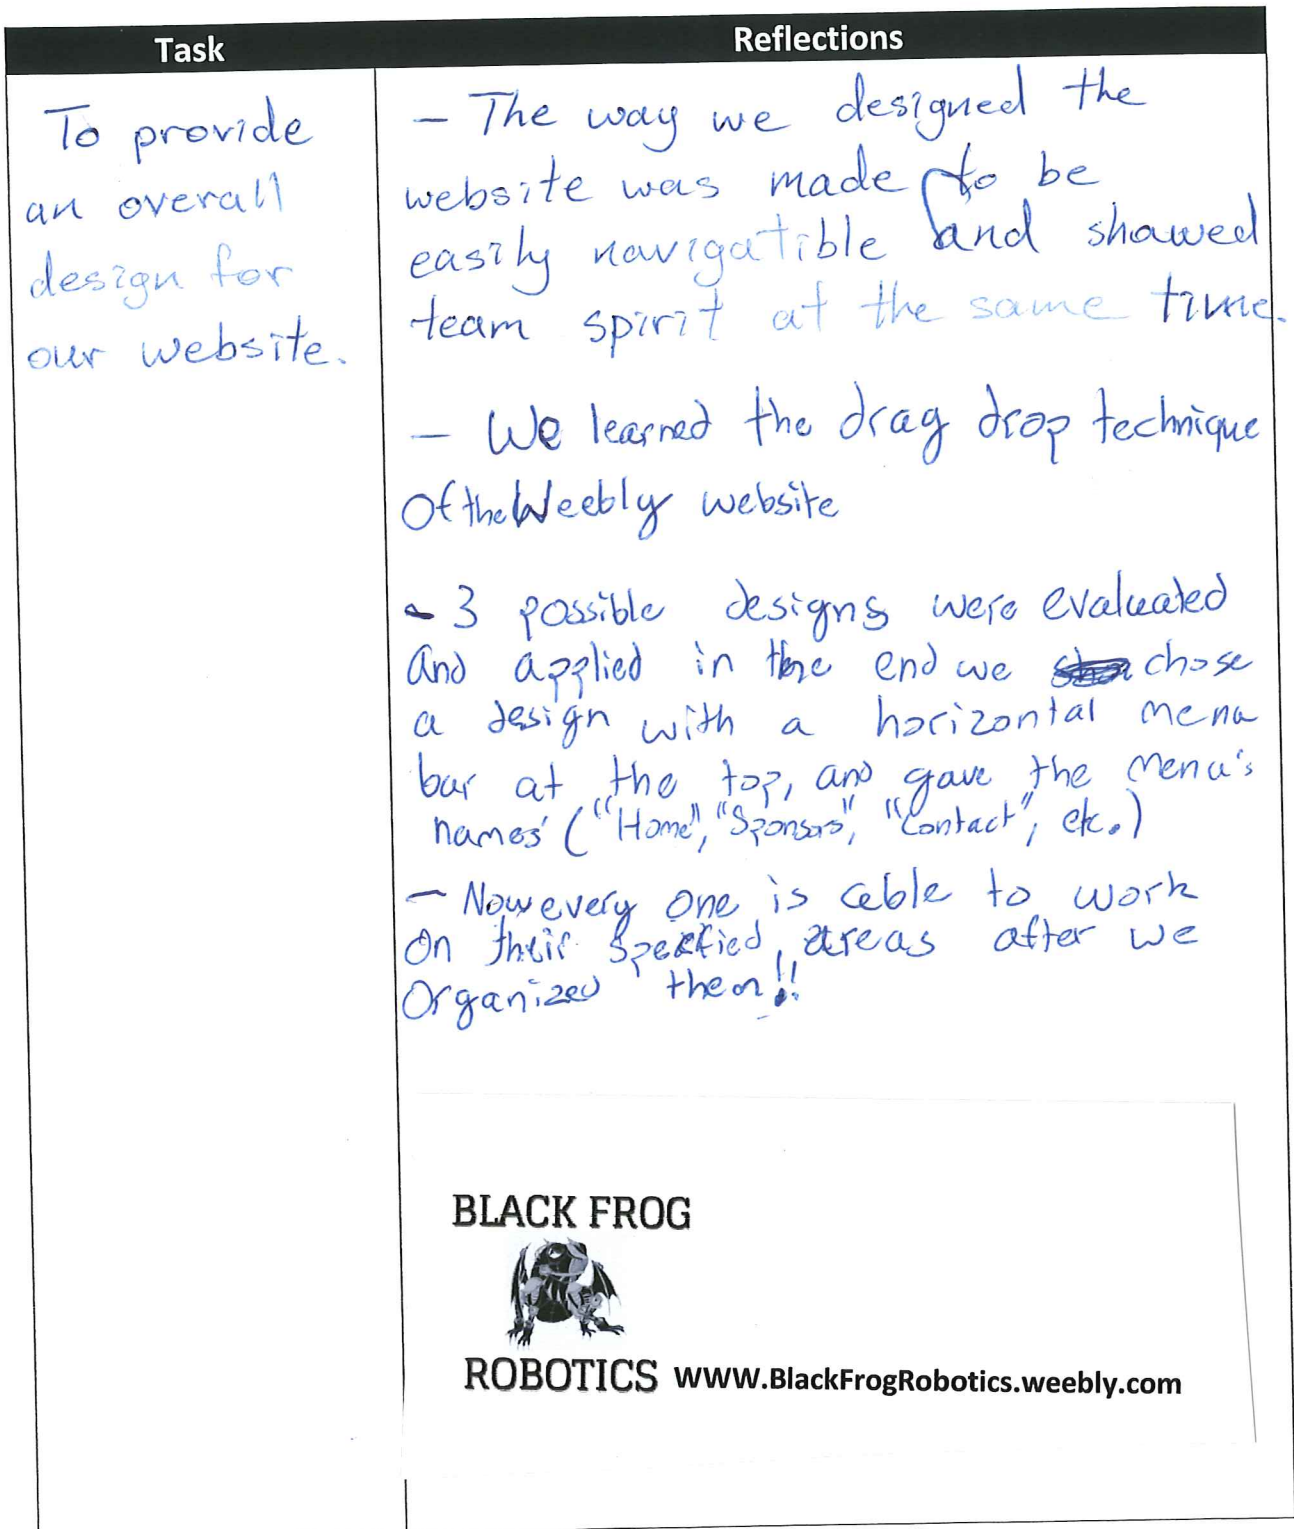 Task
Reflections
To provide
an overall
design for
our website.
- The way we designed the
website was made to be
easily navigatible and showed
team spirit at the same time.
- We learned the drag drop technique
Of the Weebly website
- 3 possible designs were evaluated
and applied in the end we chose
a design with a horizontal menu
bar at the top, and gave the menu's
names' ("Home", "Sponsors", "Contact", etc.)
- Now every one is able to work
On their specified areas after we
Organized them!!
BLACK FROG
ROBOTICS www.BlackFrogRobotics.weebly.com